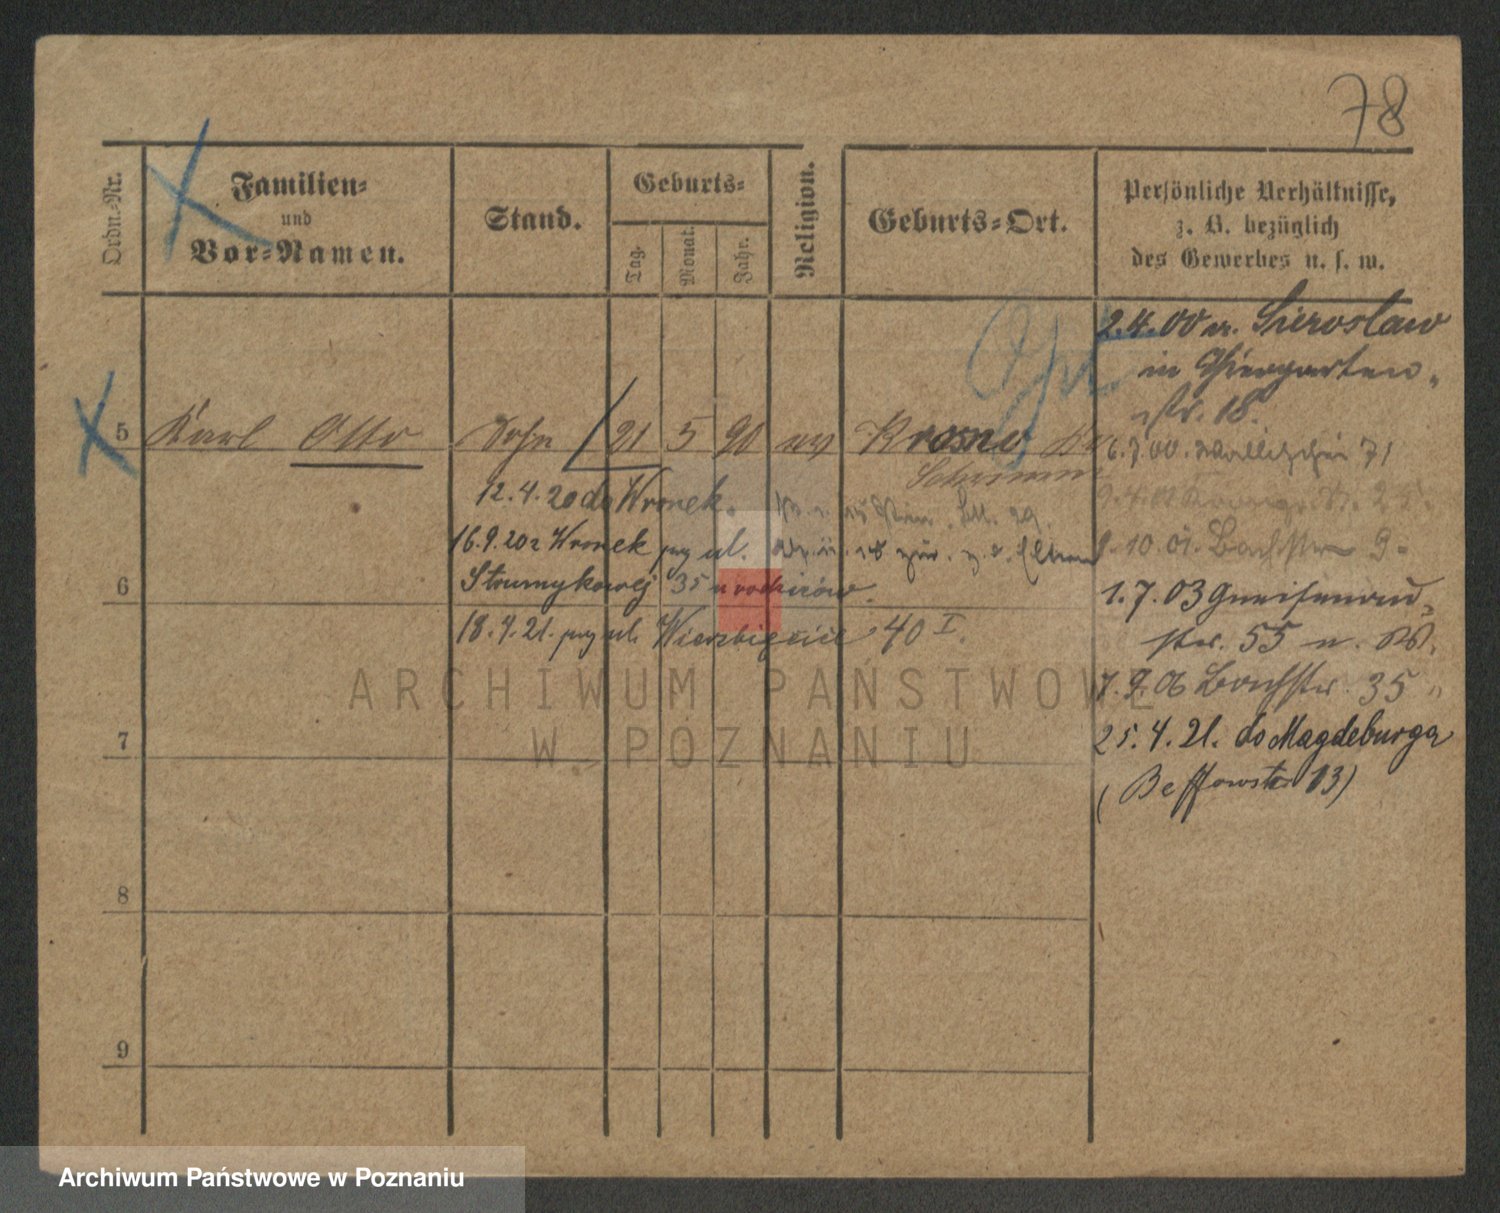 78
Ordn.-Nr.
Familien-
und
Vor-Namen.
Stand.
Geburts-
Tag.
Monat.
Jahr.
Religion.
Geburts-Ort.
Persönliche Verhältnisse,
z. B. bezüglich
des Gewerbes u. s. w.
2.4.00 v. Sieroslaw
in Thiergarten-
str. 18.
5 Karl Otto Sohn 21 5 90 ev Krosno
Schrimm
6.7.00. Wallischei 71
12.4.20 do Wronek.
10.01. Bachstr 9.
16.9.20 z Wronek przy ul.
Strumykowej 35 u rodziców.
6
1.7.03 Gneisenau-
str. 55
18.4.21. przy ul. Wierzbięcice 40 I.
7.9.06 Bachstr. 35
7
25.4.21. do Magdeburga
13)
8
9
ARCHIWUM PAŃSTWOWE
W POZNANIU
Archiwum Państwowe w Poznaniu